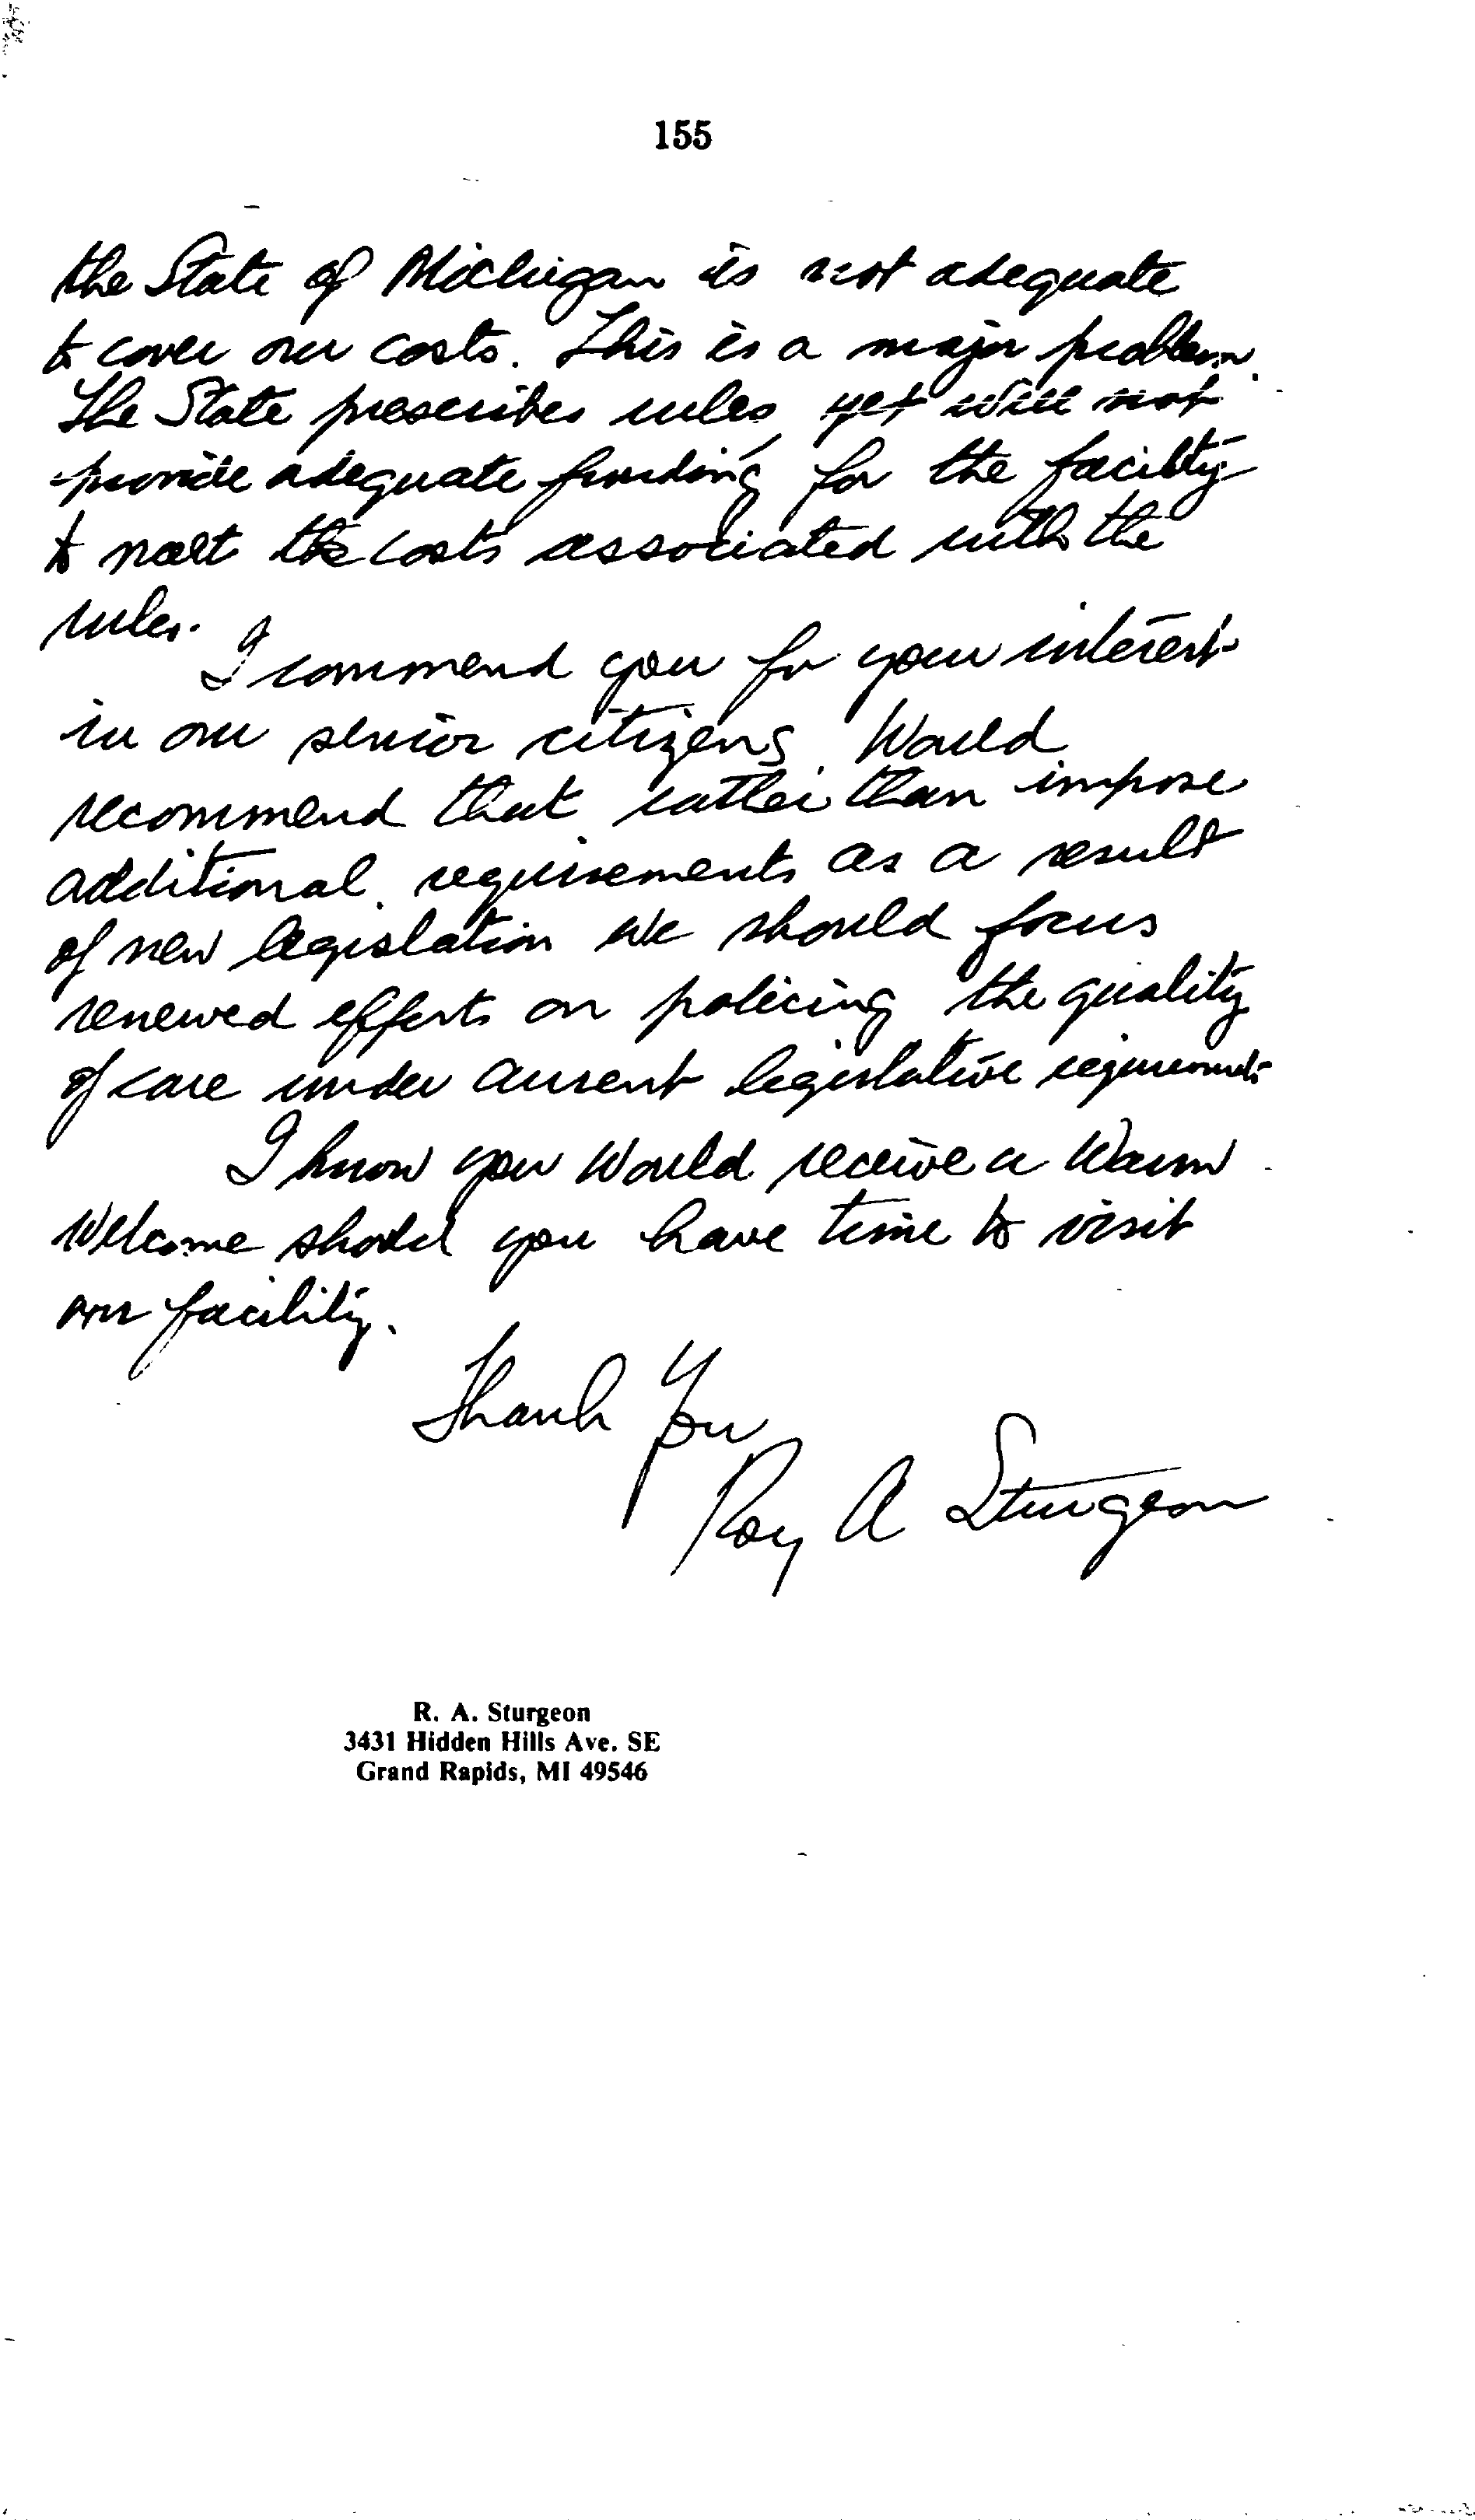 155
the State of Michigan is not adequate
to cover our costs. This is a major problem.
The State prescribes rules, yet will not
provide adequate funding for the facility
to meet the costs associated with the
rules.
I commend you for your interest
in our senior citizens. Would
recommend that rather than impose
additional requirements as a result
of new legislation we should focus
renewed efforts on policing the quality
of care under current legislative requirements
I know you would receive a warm
welcome should you have time to visit
our facility.
Thank You
Roy A Sturgeon
R. A. Sturgeon
3431 Hidden Hills Ave. SE
Grand Rapids, MI 49546